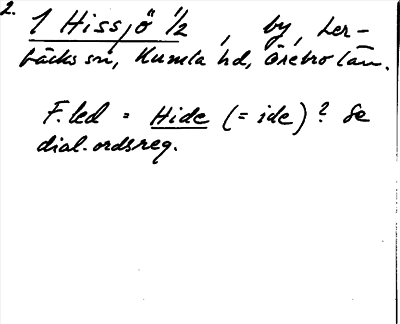 2.
1 Hissjö 1/2, by, Ler-
bäcks sn, Kumla hd, Örebro län.
F.led = Hide (= ide)? Se
dial.ordsreg.